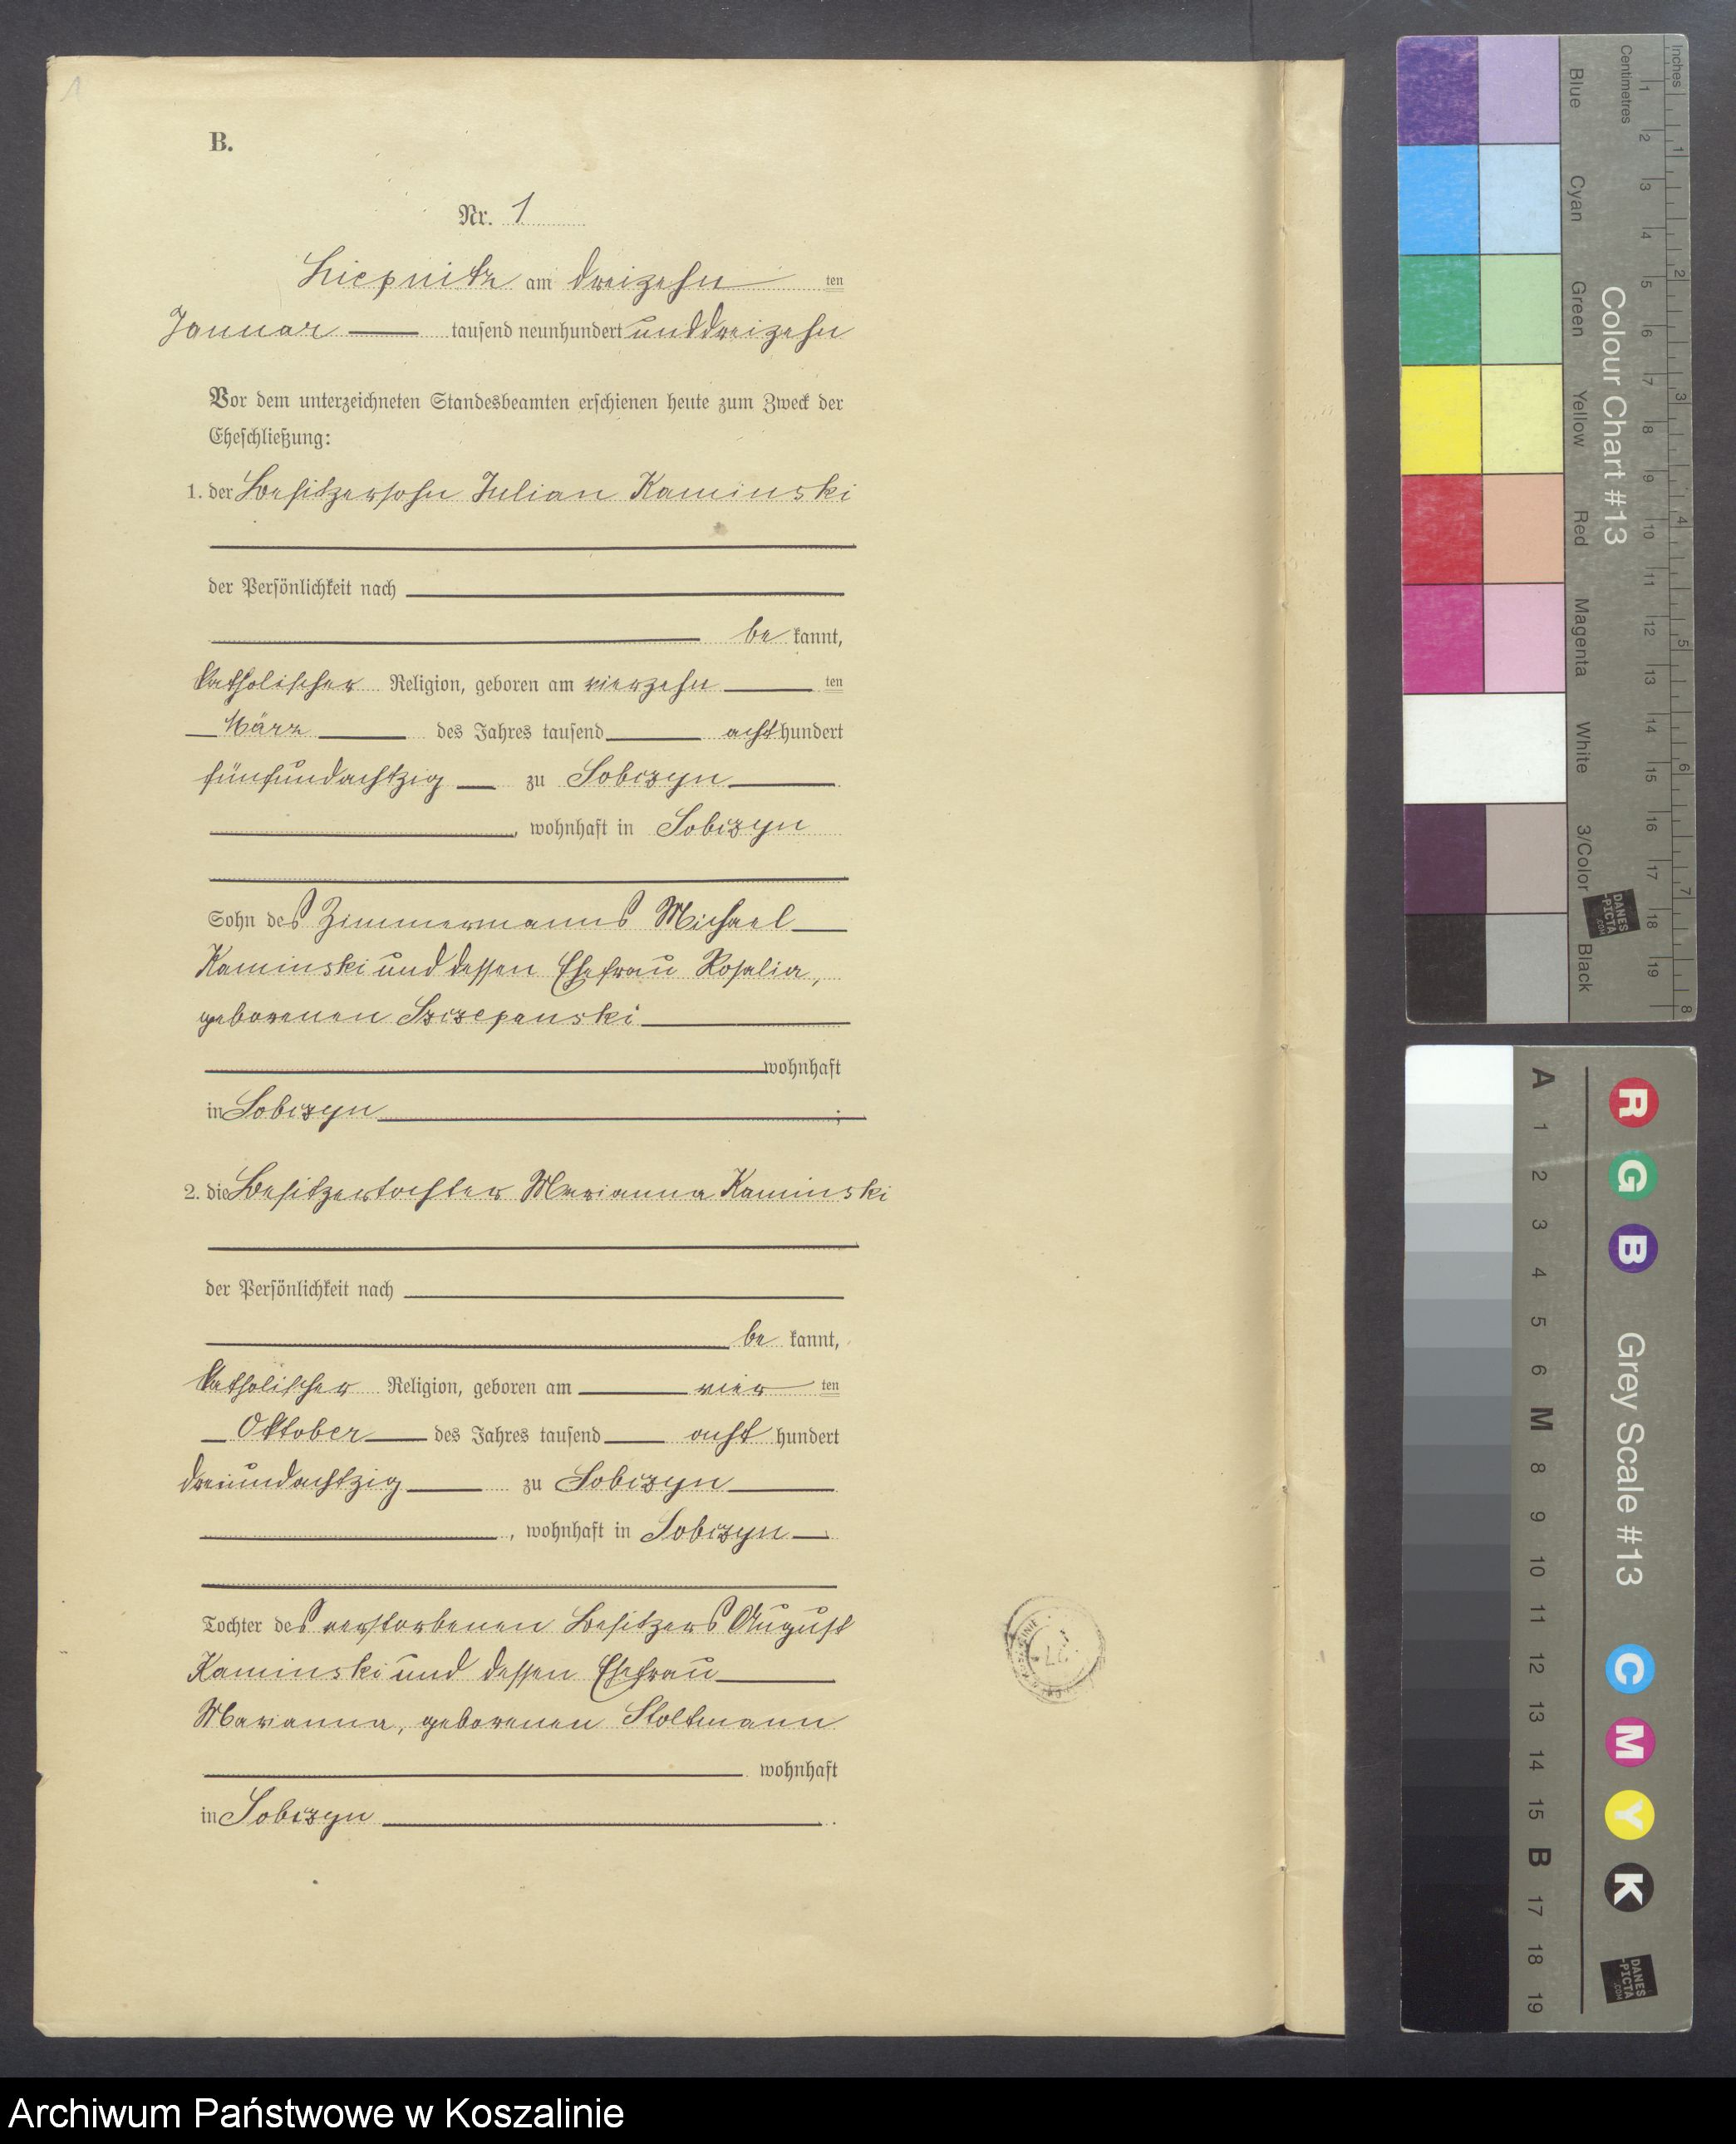 1
B.
Nr. 1
Liepnitz am dreizehn ten
Januar tausend neunhundert und dreizehn
Vor dem unterzeichneten Standesbeamten erschienen heute zum Zweck der
Eheschließung:
1. der Besitzersohn Julian Kaminski
der Persönlichkeit nach
be kannt,
katholischer Religion, geboren am vierzehn ten
März des Jahres tausend acht hundert
fünfundachtzig zu Sobczyn
, wohnhaft in Sobczyn
Sohn des Zimmermanns Michael
Kaminski und dessen Ehefrau Rosalia,
geborenen Szczepanski
wohnhaft
in Sobczyn ;
2. die Besitzertochter Marianna Kaminski
der Persönlichkeit nach
be kannt,
katholischer Religion, geboren am vier ten
Oktober des Jahres tausend acht hundert
dreiundachtzig zu Sobczyn
, wohnhaft in Sobczyn
Tochter des verstorbenen Besitzers August
Kaminski und dessen Ehefrau
Marianna, geborenen Stoltmann
wohnhaft
in Sobczyn .
Colour Chart #13
Inches
Centimetres
1 2 3 4 5 6 7 8
1 2 3 4 5 6 7 8 9 10 11 12 13 14 15 16 17 18 19
Blue
Cyan
Green
Yellow
Red
Magenta
White
3/Color
Black
DANES
-PICTA
.COM
Grey Scale #13
R G B
C M Y K
A 1 2 3 4 5 6 M 8 9 10 11 12 13 14 15 B 17 18 19
DANES
-PICTA
.COM
Archiwum Państwowe w Koszalinie